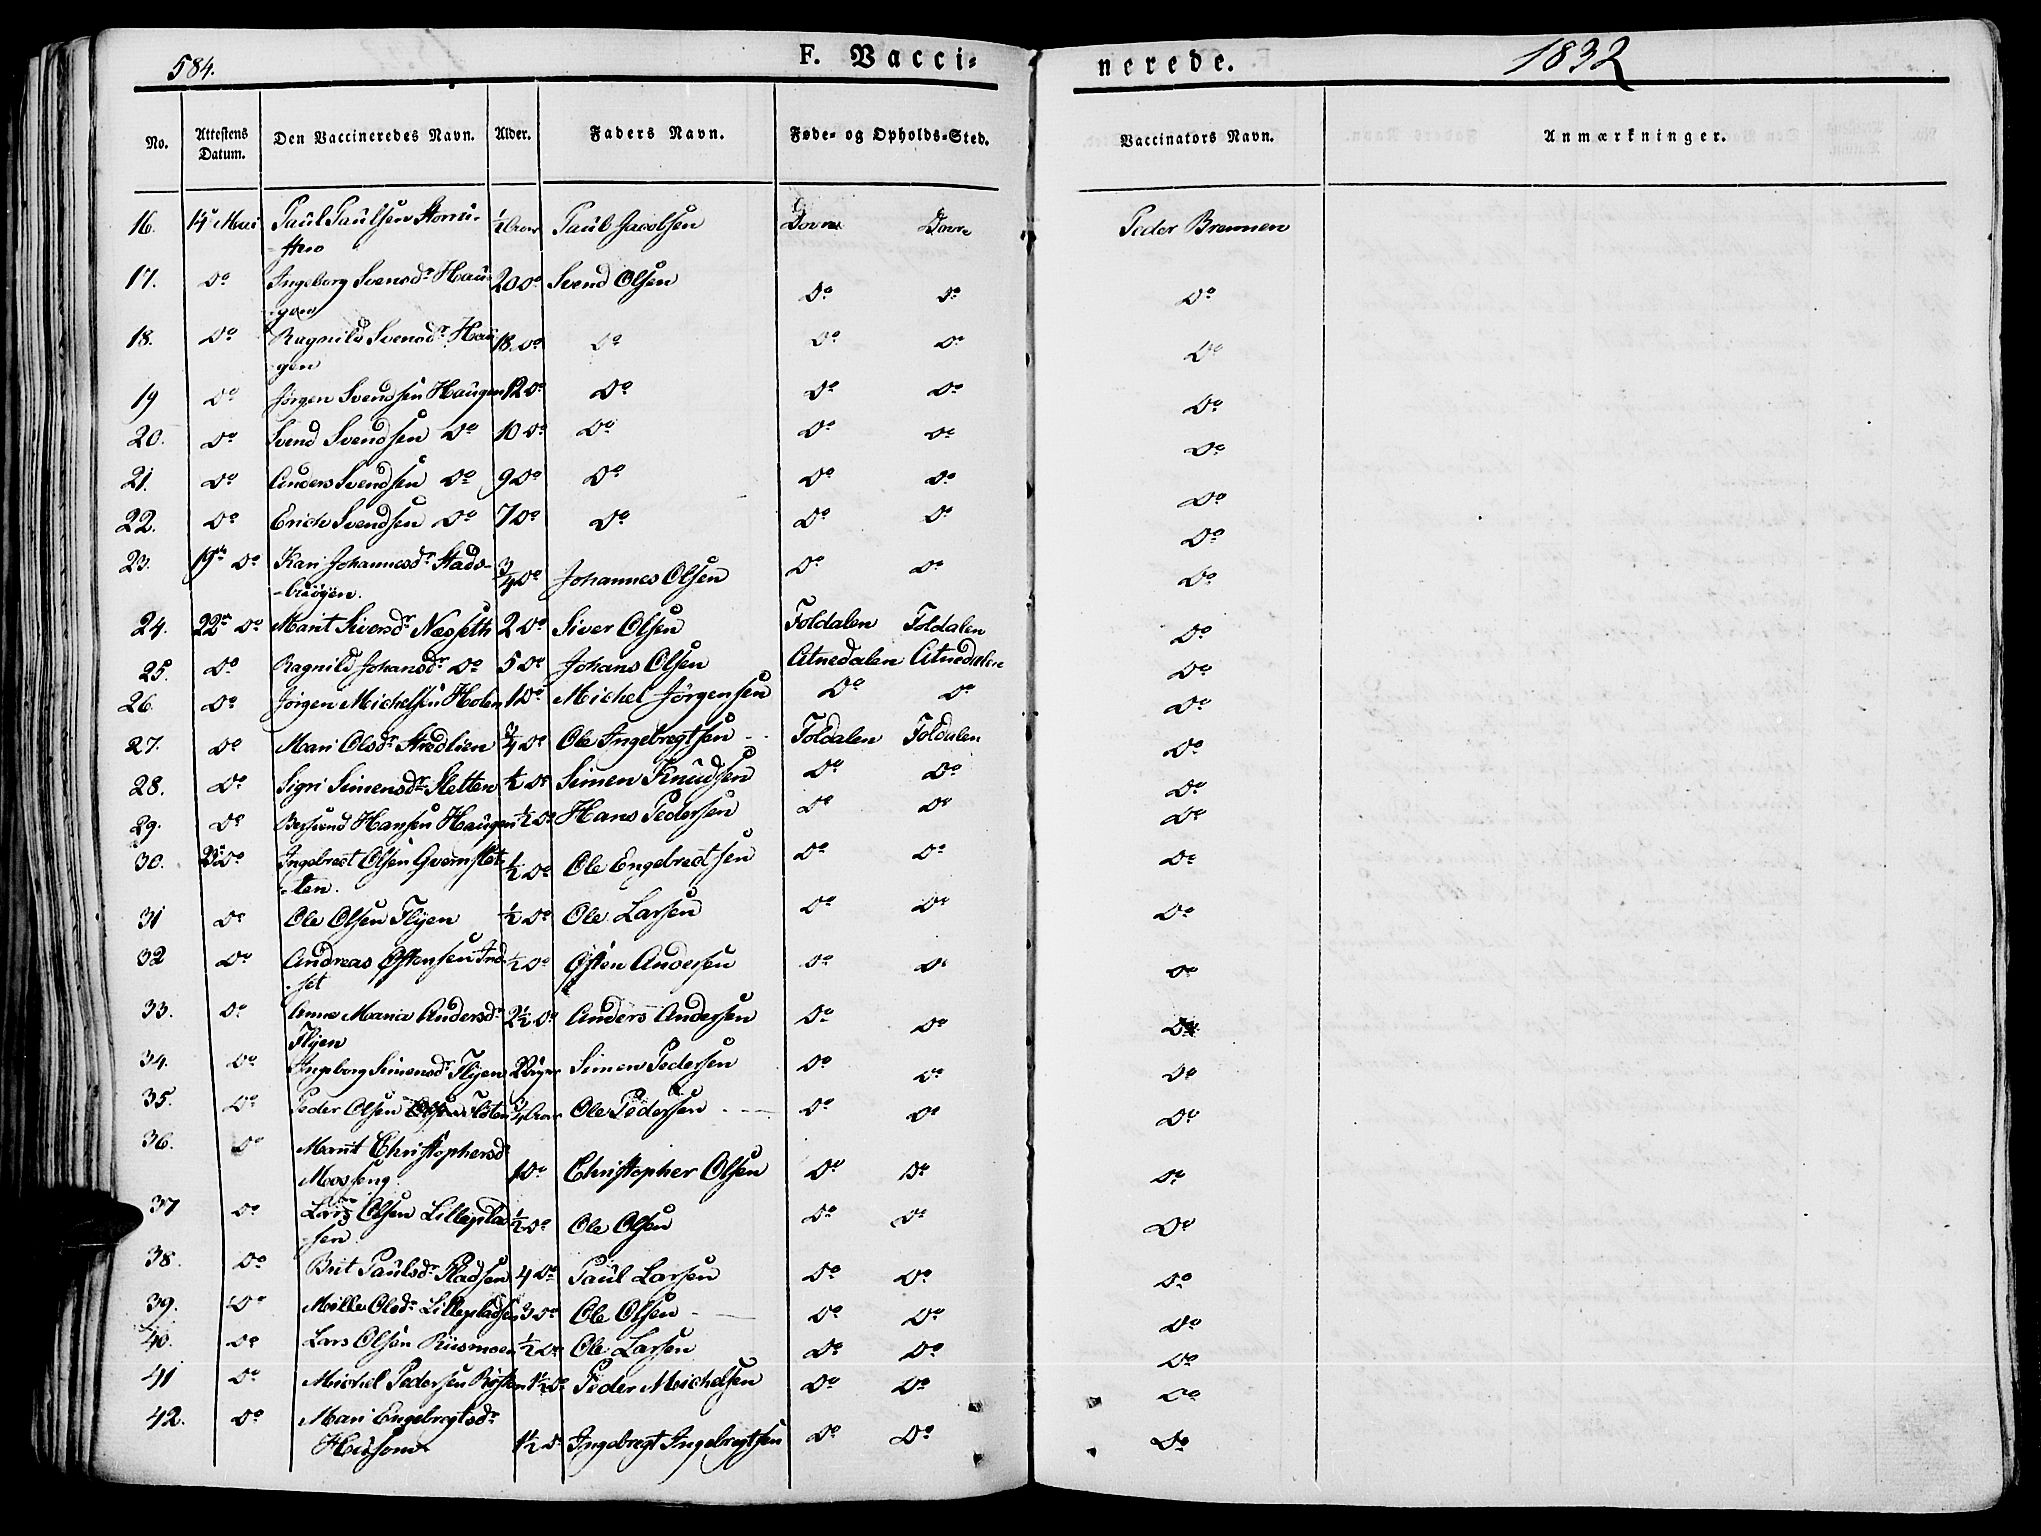 584.
F. Vacci-
nerede.
1832
No.
Attestens Datum.
Den Vaccineredes Navn.
Alder.
Faders Navn.
Føde- og Opholds-Sted.
Vaccinators Navn.
Anmærkninger.
16. 14 Mai Paul Paulsen ½ Aar Paul Jacobsen Dovre Dovre Peder Brennen
17. Do Ingeborg Svensdr Hau- 20 Do Svend Olsen Do Do Do
-gen
18. Do Ragnild Svensdr Hau- 18. Do Do Do Do Do
-gen
19 Do Jørgen Svendsen Haugen 12 Do Do Do Do Do
20. Do Svend Svendsen Do 10 Do Do Do Do Do
21. Do Anders Svendsen Do 9 Do Do Do Do Do
22. Do Erich Svendsen Do 7 Do Do Do Do Do
23. 19de Do Kari Johannesdr Stads- ¾ Do Johannes Olsen Do Do Do
-buøyen.
24. 22de Do Marit Siversdr Næsseth 2 Do Siver Olsen Foldalen Foldalen Do
25. Do Ragnild Johansdr Do 5 Do Johans Olsen Atnedalen Atnedalen Do
26. Do Jörgen Michelsen Holen 1 Do Michel Jörgensen Do Do Do
27. Do Mari Olsdr Strædlien ¾ Do Ole Ingebregtsen Foldalen Foldalen Do
28. Do Sigri Simensdr Sletten ½ Do Simen Knudsen Do Do Do
29. Do Bersvend Hansen Haugen ½ Do Hans Pedersen Do Do Do
30. Do Ingebrect Olsen Gvernstet- ½ Do Ole Engebrectsen Do Do Do
-ten.
31 Do Ole Olsen Flyen ½ Do Ole Larsen Do Do Do
32 Do Andreas Østensen Ind- ½ Do Østen Andersen Do Do Do
-set
33. Do Anne Maria Andersdr 2½ Do Anders Andersen Do Do Do
Flyen
34. Do Ingeborg Simensdr Flyen Simen Pedersen Do Do Do
35. Do Peder Olsen ¾ Aar Ole Pedersen Do Do Do
36. Do Marit Christophersd 1 Do Christopher Olsen Do Do Do
Moseng
37 Do Lars Olsen Lilleplad- ½ Do Ole Olsen Do Do Do
-sen
38. Do Brit Paulsdr Pladsen 4 Do Paul Larsen Do Do Do
39. Do Mille Olsdr Lillepladsen 3 Do Ole Olsen Do Do Do
40. Do Lars Olsen Riismoen ½ Do Ole Larsen Do Do Do
41 Do Michel Pedersen Røsten 1½ Do Peder Michelsen Do Do Do
42. Do Mari Engebregtsdr 1½ Do Ingebregt Ingebregtsen Do Do Do
Husom